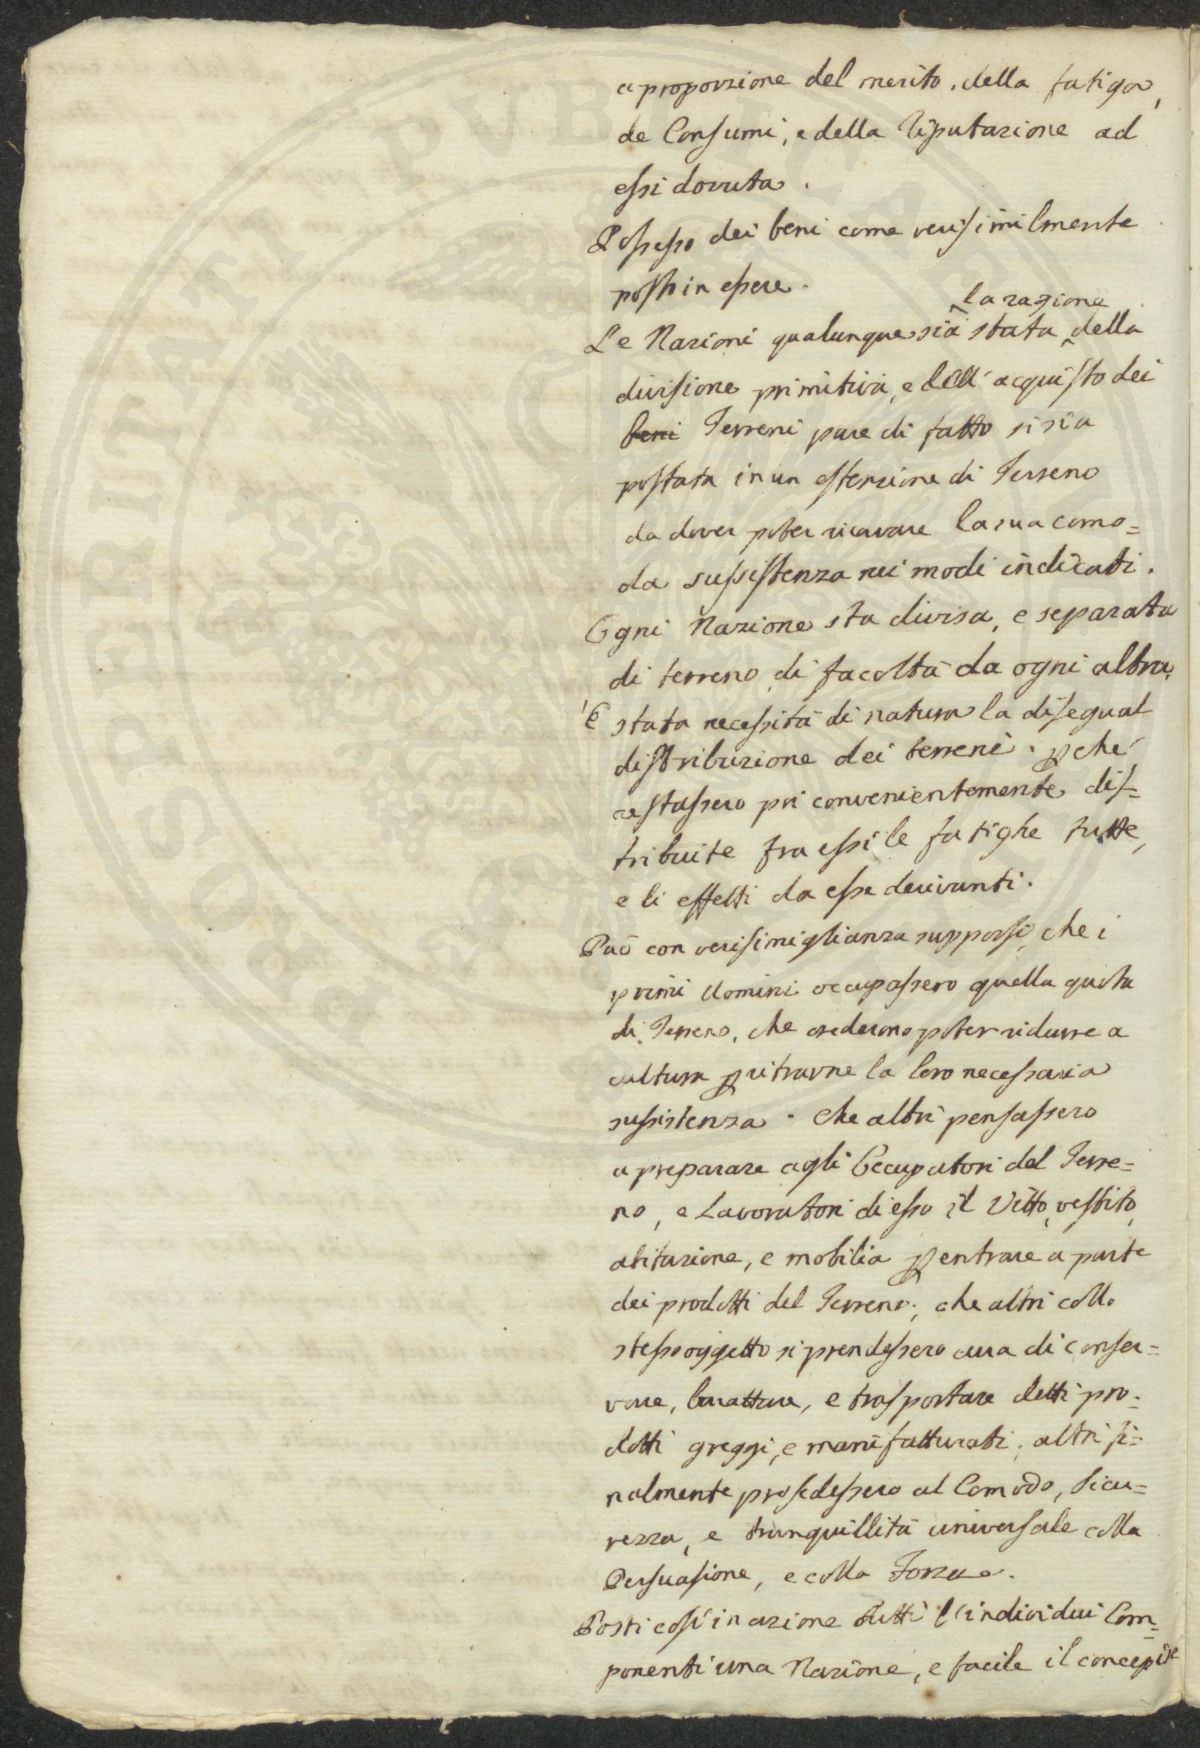 a proporzione del merito, della fatiga,
de Consumi, e della riputazione ad
essi dovuta.
Possesso dei beni come verisimilmente
posto in essere.
la ragione
Le Nazioni qualunque sia stata della
divisione primitiva, e dell' acquisto dei
beni Terreni pare di fatto si sia
postata in un estensione di Terreno
da dover poter ricavare la sua como=
da sussistenza nei modi indicati.
Ogni Nazione sta divisa, e separata
di terreno, di facoltà da ogni altra.
È stata necessità di natura la disegual
distribuzione dei terreni. pche
restassero più convenientemente dis=
tribuite fra essi le fatighe tutte,
e li effetti da esse derivanti.
Può con verisimiglianza supporsi, che i
primi Uomini occupassero quella quota
di Terreno, che crederono poter ridurre a
cultura p ritrarne la loro necessaria
sussistenza. Che altri pensassero
a preparare agli Occupatori del Terre=
no, e Lavoratori di esso il Vitto, vestito,
abitazione, e mobilia p entrare a parte
dei prodotti del Terreno; che altri collo
stesso oggetto si prendessero cura di conser=
vare, barattare, e trasportare detti pro=
dotti greggi, e manifatturati; altri fi=
nalmente presedessero al Comodo, Sicu=
rezza, e tranquillità universale colla
Persuasione, e colla Forza.
Posti così in azione tutti l'individui Com=
ponenti una Nazione, e facile il concepire